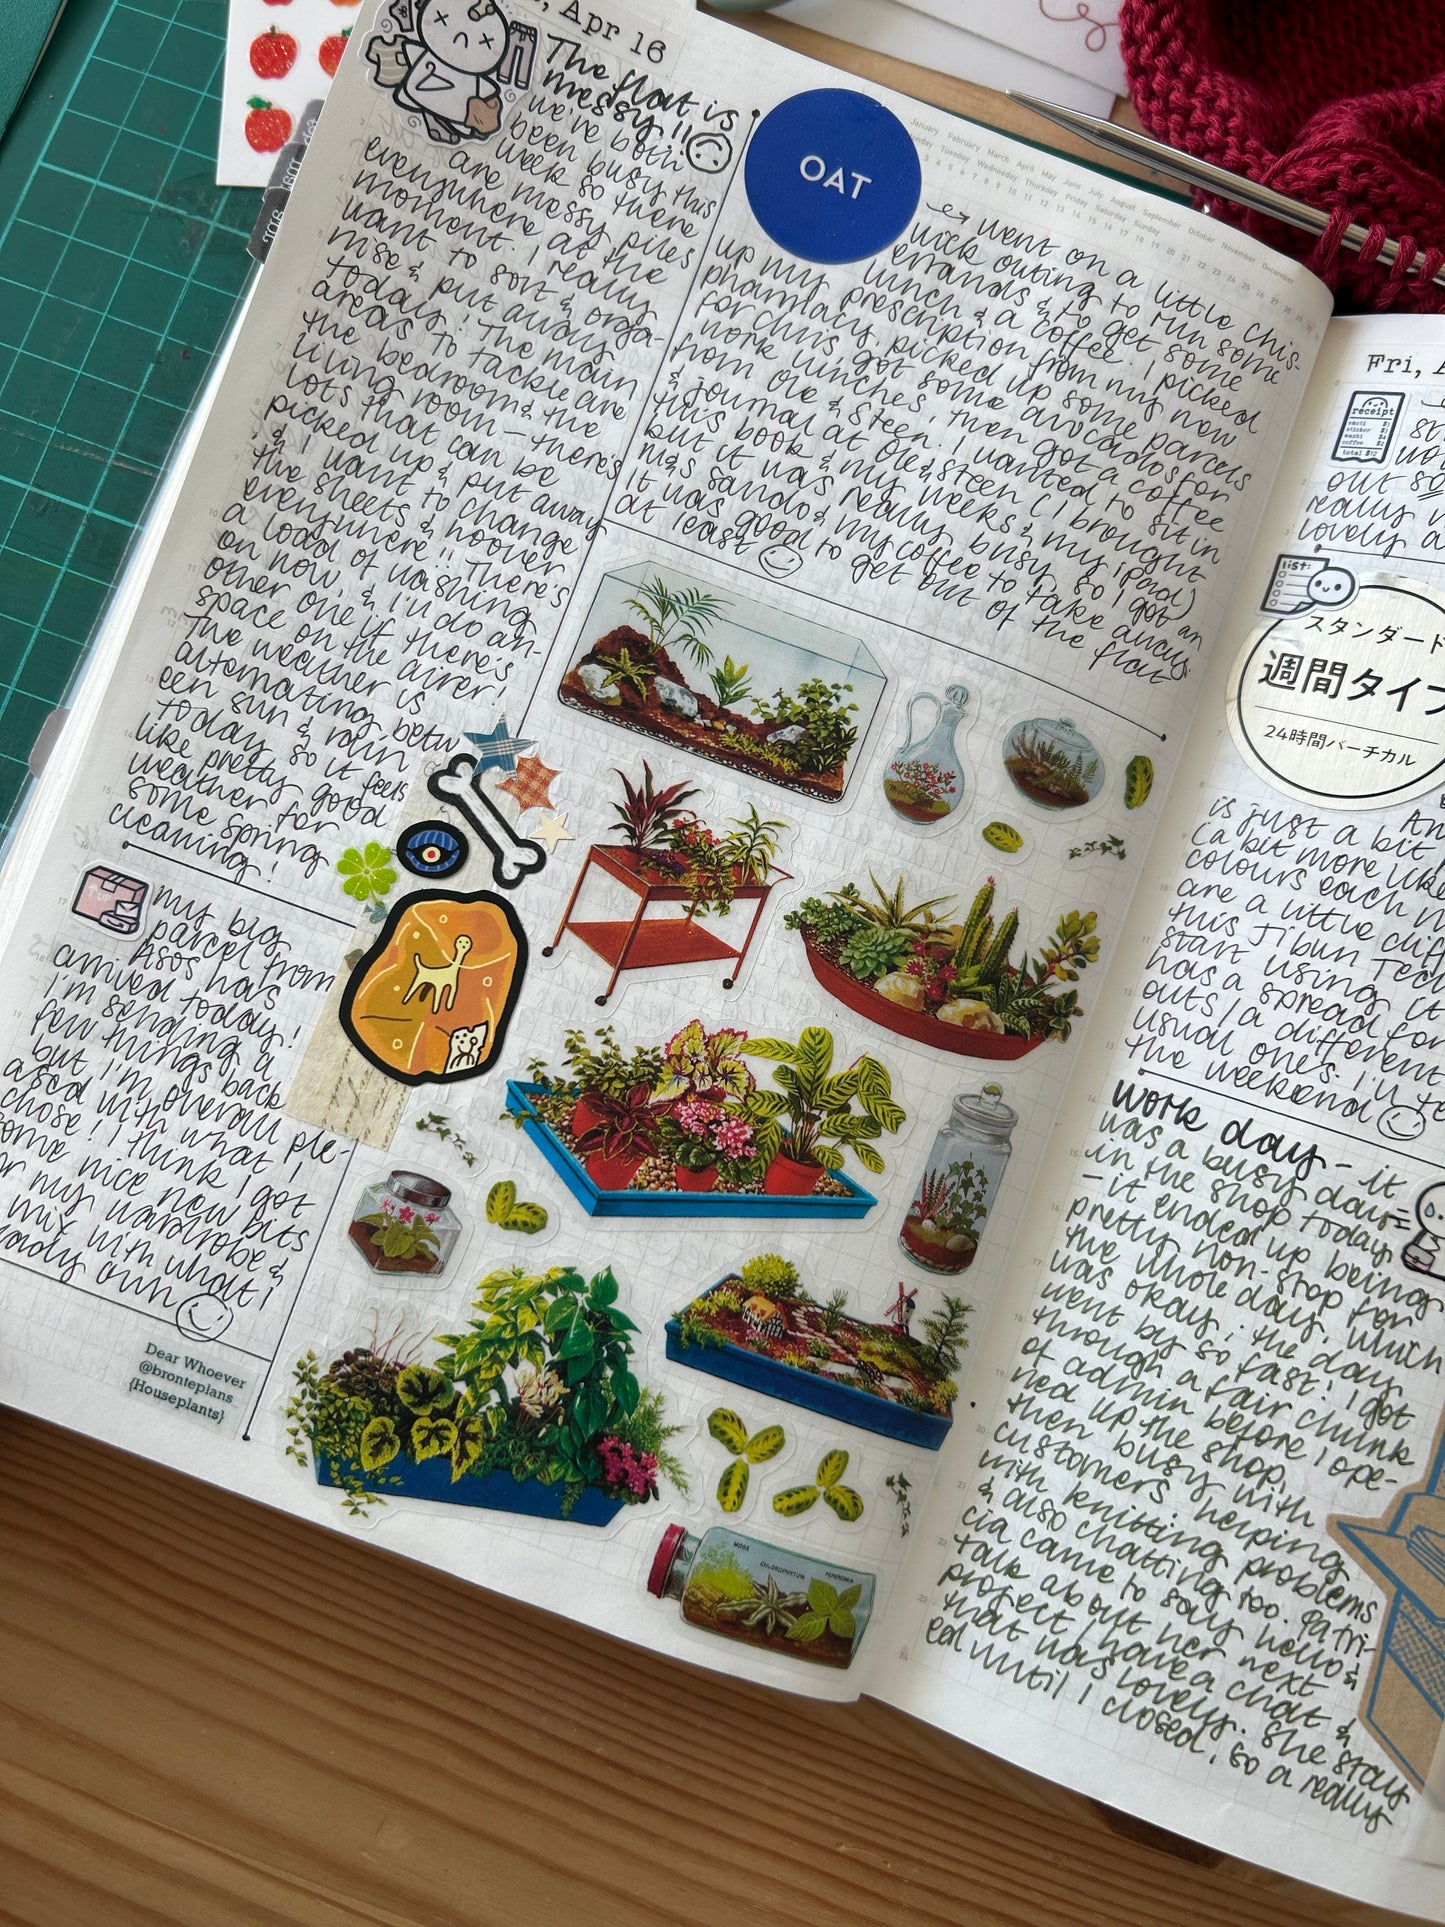 , Apr 16
The flat is
messy!!
we've both
been busy this
week so there
are messy piles
everywhere at the
moment. I really
want to sort & orga-
nise & put away
today! The main
areas to tackle are
the bedroom & the
living room – there's
lots that can be
picked up & put away
, & I want to change
the sheets & hoover
everywhere!! There's
a load of washing
on now, & I'll do an-
other one if there's
space on the airer!
The weather is
alternating betw
een sun & rain
today, so it feels
like pretty good
weather for
some spring
cleaning!
my big
parcel from
Asos has
arrived today!
I'm sending a
few things back
but I'm overall ple-
ased with what I
chose! I think I got
some nice new bits
or my wardrobe &
mix with what I
eady own
Dear Whoever
@bronteplans
{Houseplants}
OAT
January February March April May June July August September October November December
Sunday Tuesday Wednesday Thursday Friday Saturday Sunday
went on a little
wick outing to run some
errands & to get some
lunch & a coffee. I picked
up my prescription from my new
pharmacy, picked up some parcels
for Chris, got some avocados for
work lunches, then got a coffee
from Ole & Steen. I wanted to sit in
& journal at Ole & Steen (I brought
this book & my weeks & my iPad)
but it was really busy, so I got an
m&s sando & my coffee to take away.
It was good to get out of the flat
at least
MOSS
CHLOROPHYTUM
PEPEROMIA
Fri, A
receipt
emoti $3
sticker $3
washi $4
coffee $2
total $12
out so
really
lovely a
list:
スタンダード
週間タイプ
24時間バーチカル
is just a bit
(a bit more like
colours each m
are a little diff
this Jibun Tech
start using it
has a spread for
outs/a different
usual one's. I'll te
the weekend
work day – it
was a busy day
in the shop today
– it ended up being
pretty non-stop for
the whole day, which
was okay; the day
went by so fast! I got
through a fair chunk
of admin before I ope-
ned up the shop,
then busy with
customers, helping
with knitting problems
& also chatting too. Patri-
cia came to say hello &
talk about her next
project, I have a chat &
that was lovely. She stay
ed until I closed, so a really